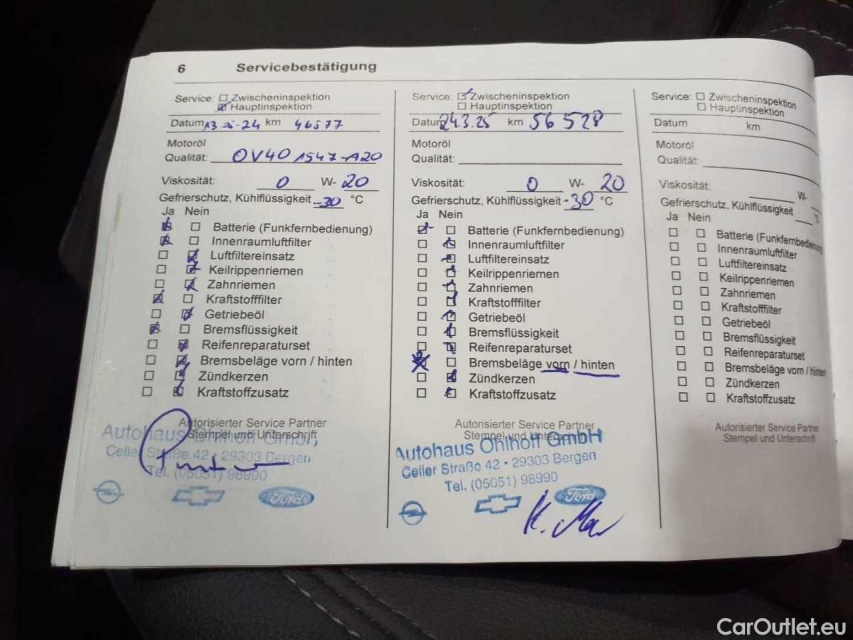 6 Servicebestätigung
Service: Zwischeninspektion
Hauptinspektion
Datum 24 km 46577
Motoröl
Qualität: OV40 1547-A20
Viskosität: 0 W- 20
Gefrierschutz, Kühlflüssigkeit -30 °C
Ja Nein
Batterie (Funkfernbedienung)
Innenraumluftfilter
Luftfiltereinsatz
Keilrippenriemen
Zahnriemen
Kraftstofffilter
Getriebeöl
Bremsflüssigkeit
Reifenreparaturset
Bremsbeläge vorn / hinten
Zündkerzen
Kraftstoffzusatz
Autorisierter Service Partner
Stempel und Unterschrift
Autohaus Ohlhoff GmbH
Celler Straße 42 · 29303 Bergen
Tel. (05051) 98990
Ford
Service: Zwischeninspektion
Hauptinspektion
Datum 24.3.25 km 56528
Motoröl
Qualität:
Viskosität: 0 W- 20
Gefrierschutz, Kühlflüssigkeit -30 °C
Ja Nein
Batterie (Funkfernbedienung)
Innenraumluftfilter
Luftfiltereinsatz
Keilrippenriemen
Zahnriemen
Kraftstofffilter
Getriebeöl
Bremsflüssigkeit
Reifenreparaturset
Bremsbeläge vorn / hinten
Zündkerzen
Kraftstoffzusatz
Autorisierter Service Partner
Stempel und Unterschrift
Autohaus Ohlhoff GmbH
Celler Straße 42 · 29303 Bergen
Tel. (05051) 98990
Ford
Service: Zwischeninspektion
Hauptinspektion
Datum km
Motoröl
Qualität:
Viskosität: W-
Gefrierschutz, Kühlflüssigkeit °C
Ja Nein
Batterie (Funkfernbedienung
Innenraumluftfilter
Luftfiltereinsatz
Keilrippenriemen
Zahnriemen
Kraftstofffilter
Getriebeöl
Bremsflüssigkeit
Reifenreparaturset
Bremsbeläge vorn / hinten
Zündkerzen
Kraftstoffzusatz
Autorisierter Service Partner
Stempel und Unterschrift
CarOutlet.eu